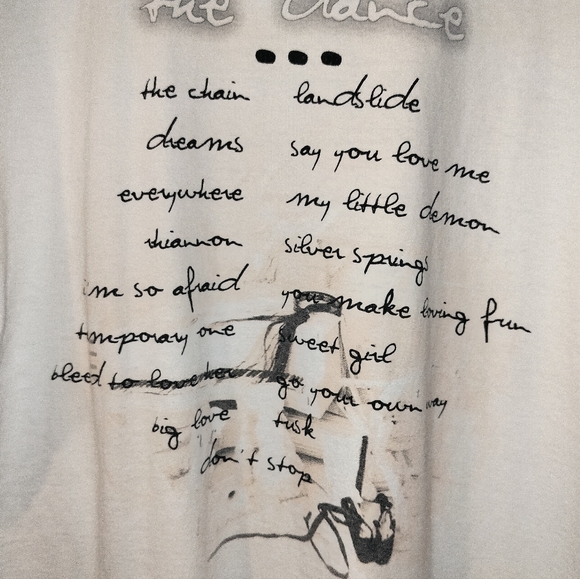 the dance
the chain
dreams
everywhere
rhiannon
i'm so afraid
temporary one
bleed to love her
big love
landslide
say you love me
my little demon
silver springs
you make loving fun
sweet girl
go your own way
tusk
don't stop